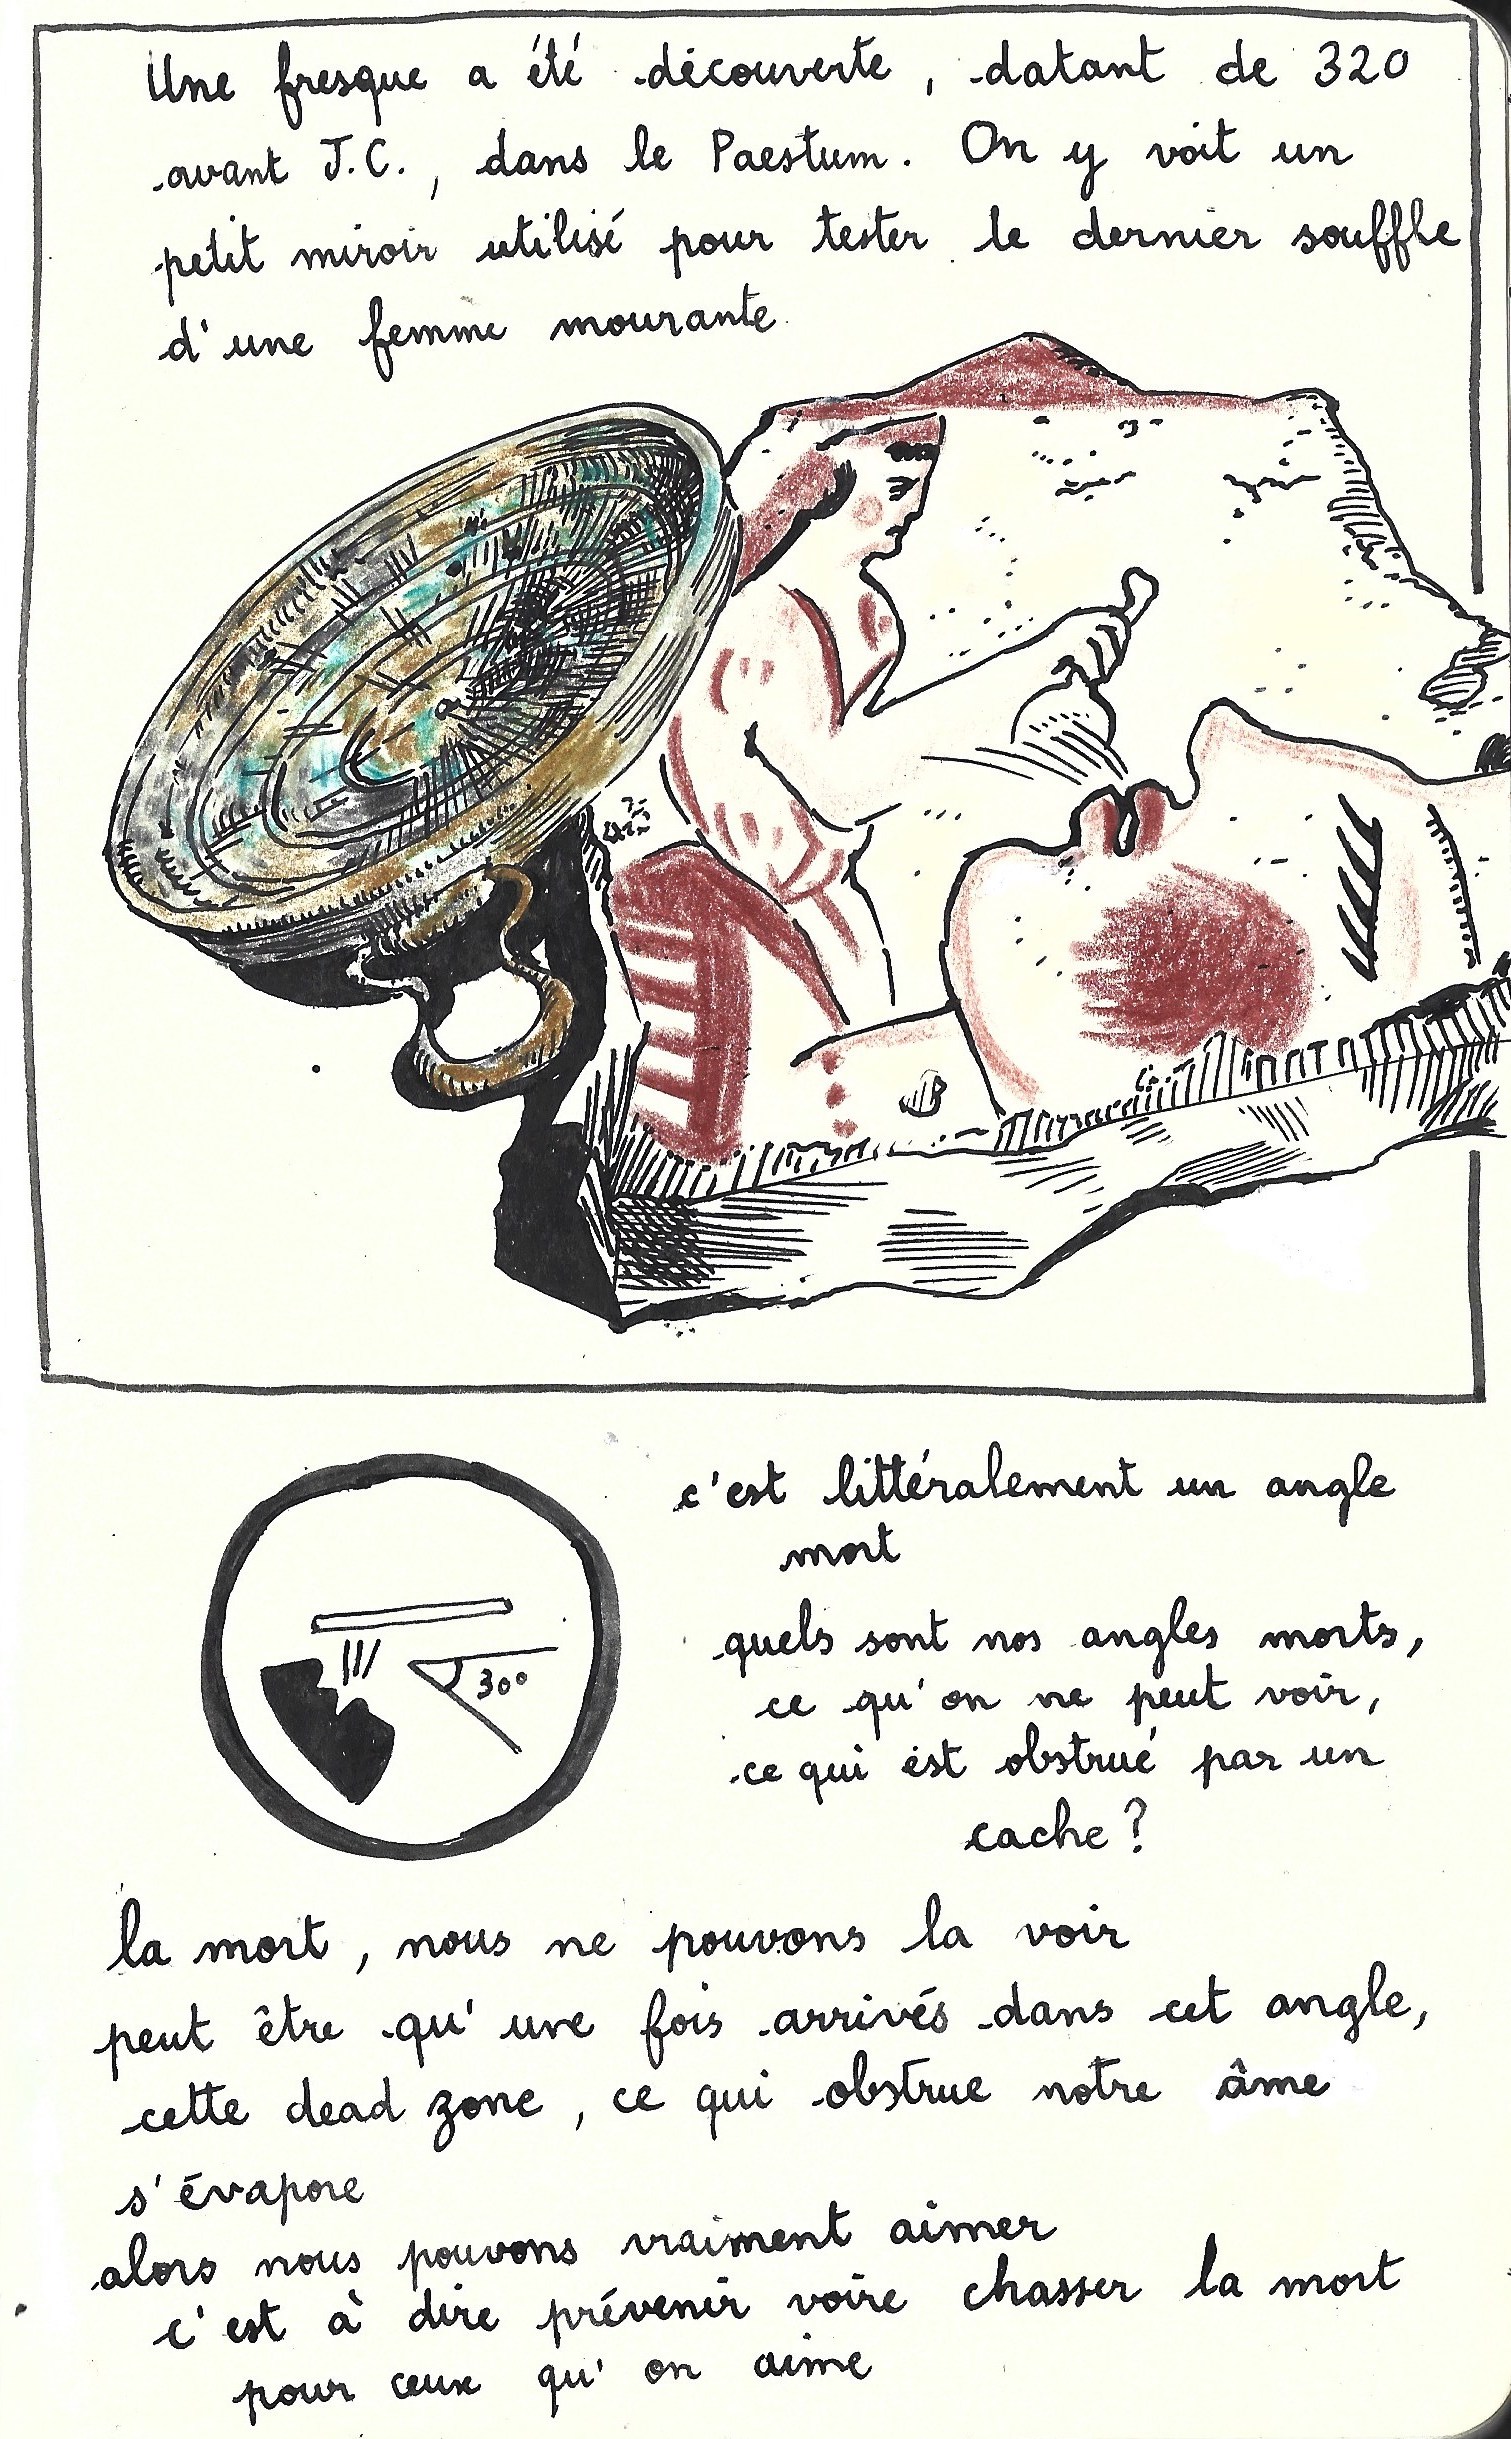 Une fresque a été découverte, datant de 320
avant J.C., dans le Paestum. On y voit un
petit miroir utilisé pour tester le dernier souffle
d'une femme mourante
30°
c'est littéralement un angle
mort
quels sont nos angles morts,
ce qu'on ne peut voir,
ce qui est obstrué par un
cache ?
la mort, nous ne pouvons la voir
peut être qu'une fois arrivés dans cet angle,
cette dead zone, ce qui obstrue notre âme
s'évapore
alors nous pouvons vraiment aimer
c'est à dire prévenir voire chasser la mort
pour ceux qu'on aime